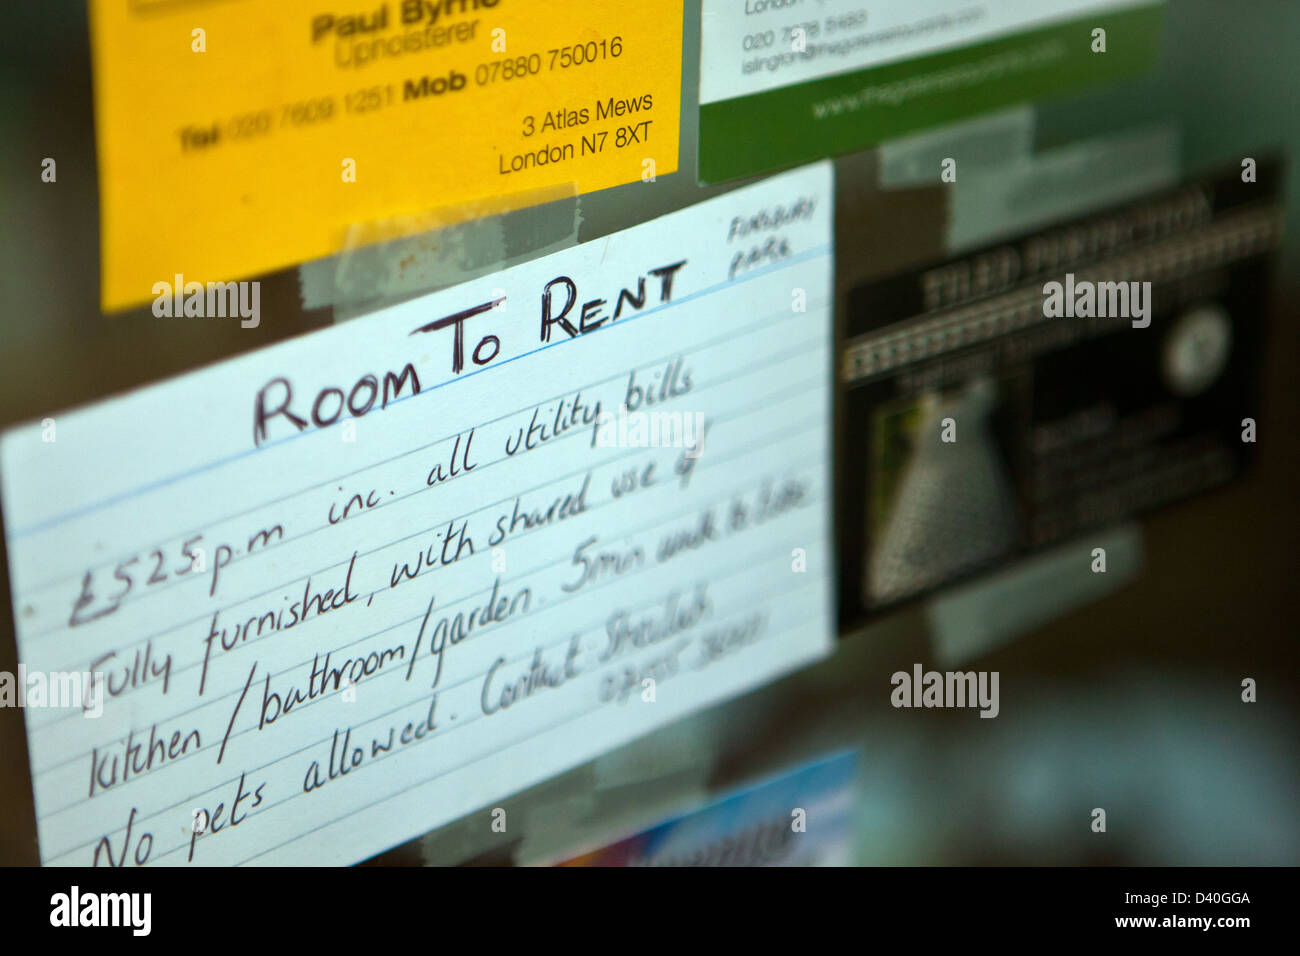 Paul Byrne
Upholsterer
Tel 020 7609 1251 Mob 07880 750016
3 Atlas Mews
London N7 8XT
London
islington@
FINSBURY
PARK
ROOM TO RENT
£525p.m inc. all utility bills
Fully furnished, with shared use of
kitchen/bathroom/garden. 5min walk to tube
No pets allowed. Contact:
TILED PERFECTION
alamy
Image ID: D40GGA
www.alamy.com